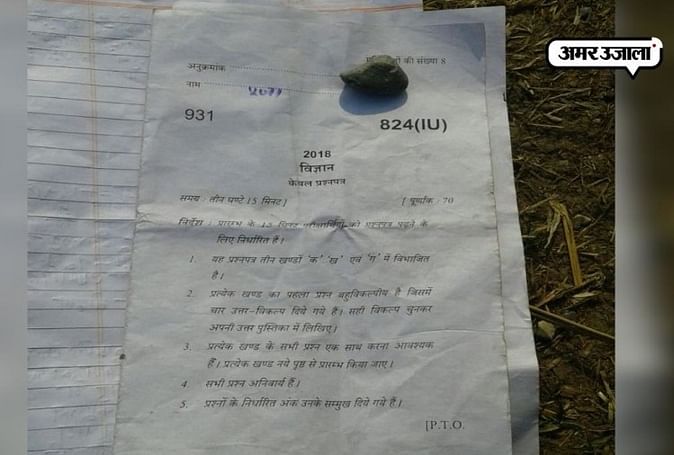 अमर उजाला
अनुक्रमांक की संख्या 8
नाम
931 824(IU)
2018
विज्ञान
केवल प्रश्नपत्र
समय : तीन घण्टे 15 मिनट ] [ पूर्णांक : 70
निर्देश : प्रारम्भ के 15 मिनट परीक्षार्थियों को प्रश्नपत्र पढ़ने के
लिए निर्धारित हैं ।
1. यह प्रश्नपत्र तीन खण्डों 'क' 'ख' एवं 'ग' में विभाजित
है ।
2. प्रत्येक खण्ड का पहला प्रश्न बहुविकल्पीय है जिसमें
चार उत्तर-विकल्प दिये गये हैं । सही विकल्प चुनकर
अपनी उत्तर पुस्तिका में लिखिए ।
3. प्रत्येक खण्ड के सभी प्रश्न एक साथ करना आवश्यक
हैं । प्रत्येक खण्ड नये पृष्ठ से प्रारम्भ किया जाए ।
4. सभी प्रश्न अनिवार्य हैं ।
5. प्रश्नों के निर्धारित अंक उनके सम्मुख दिये गये हैं ।
[P.T.O.